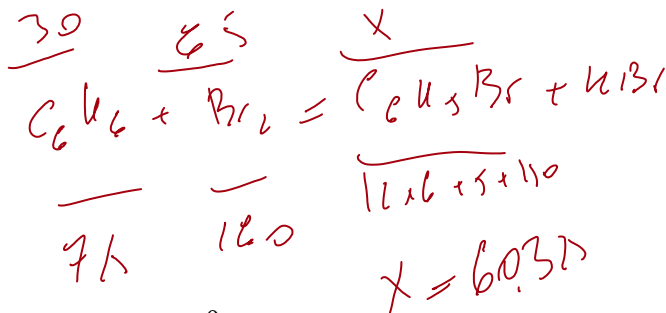 30 65 X
C₆H₆ + Br₂ = C₆H₅Br + HBr
78 160 12·6+5+80
X = 60,38